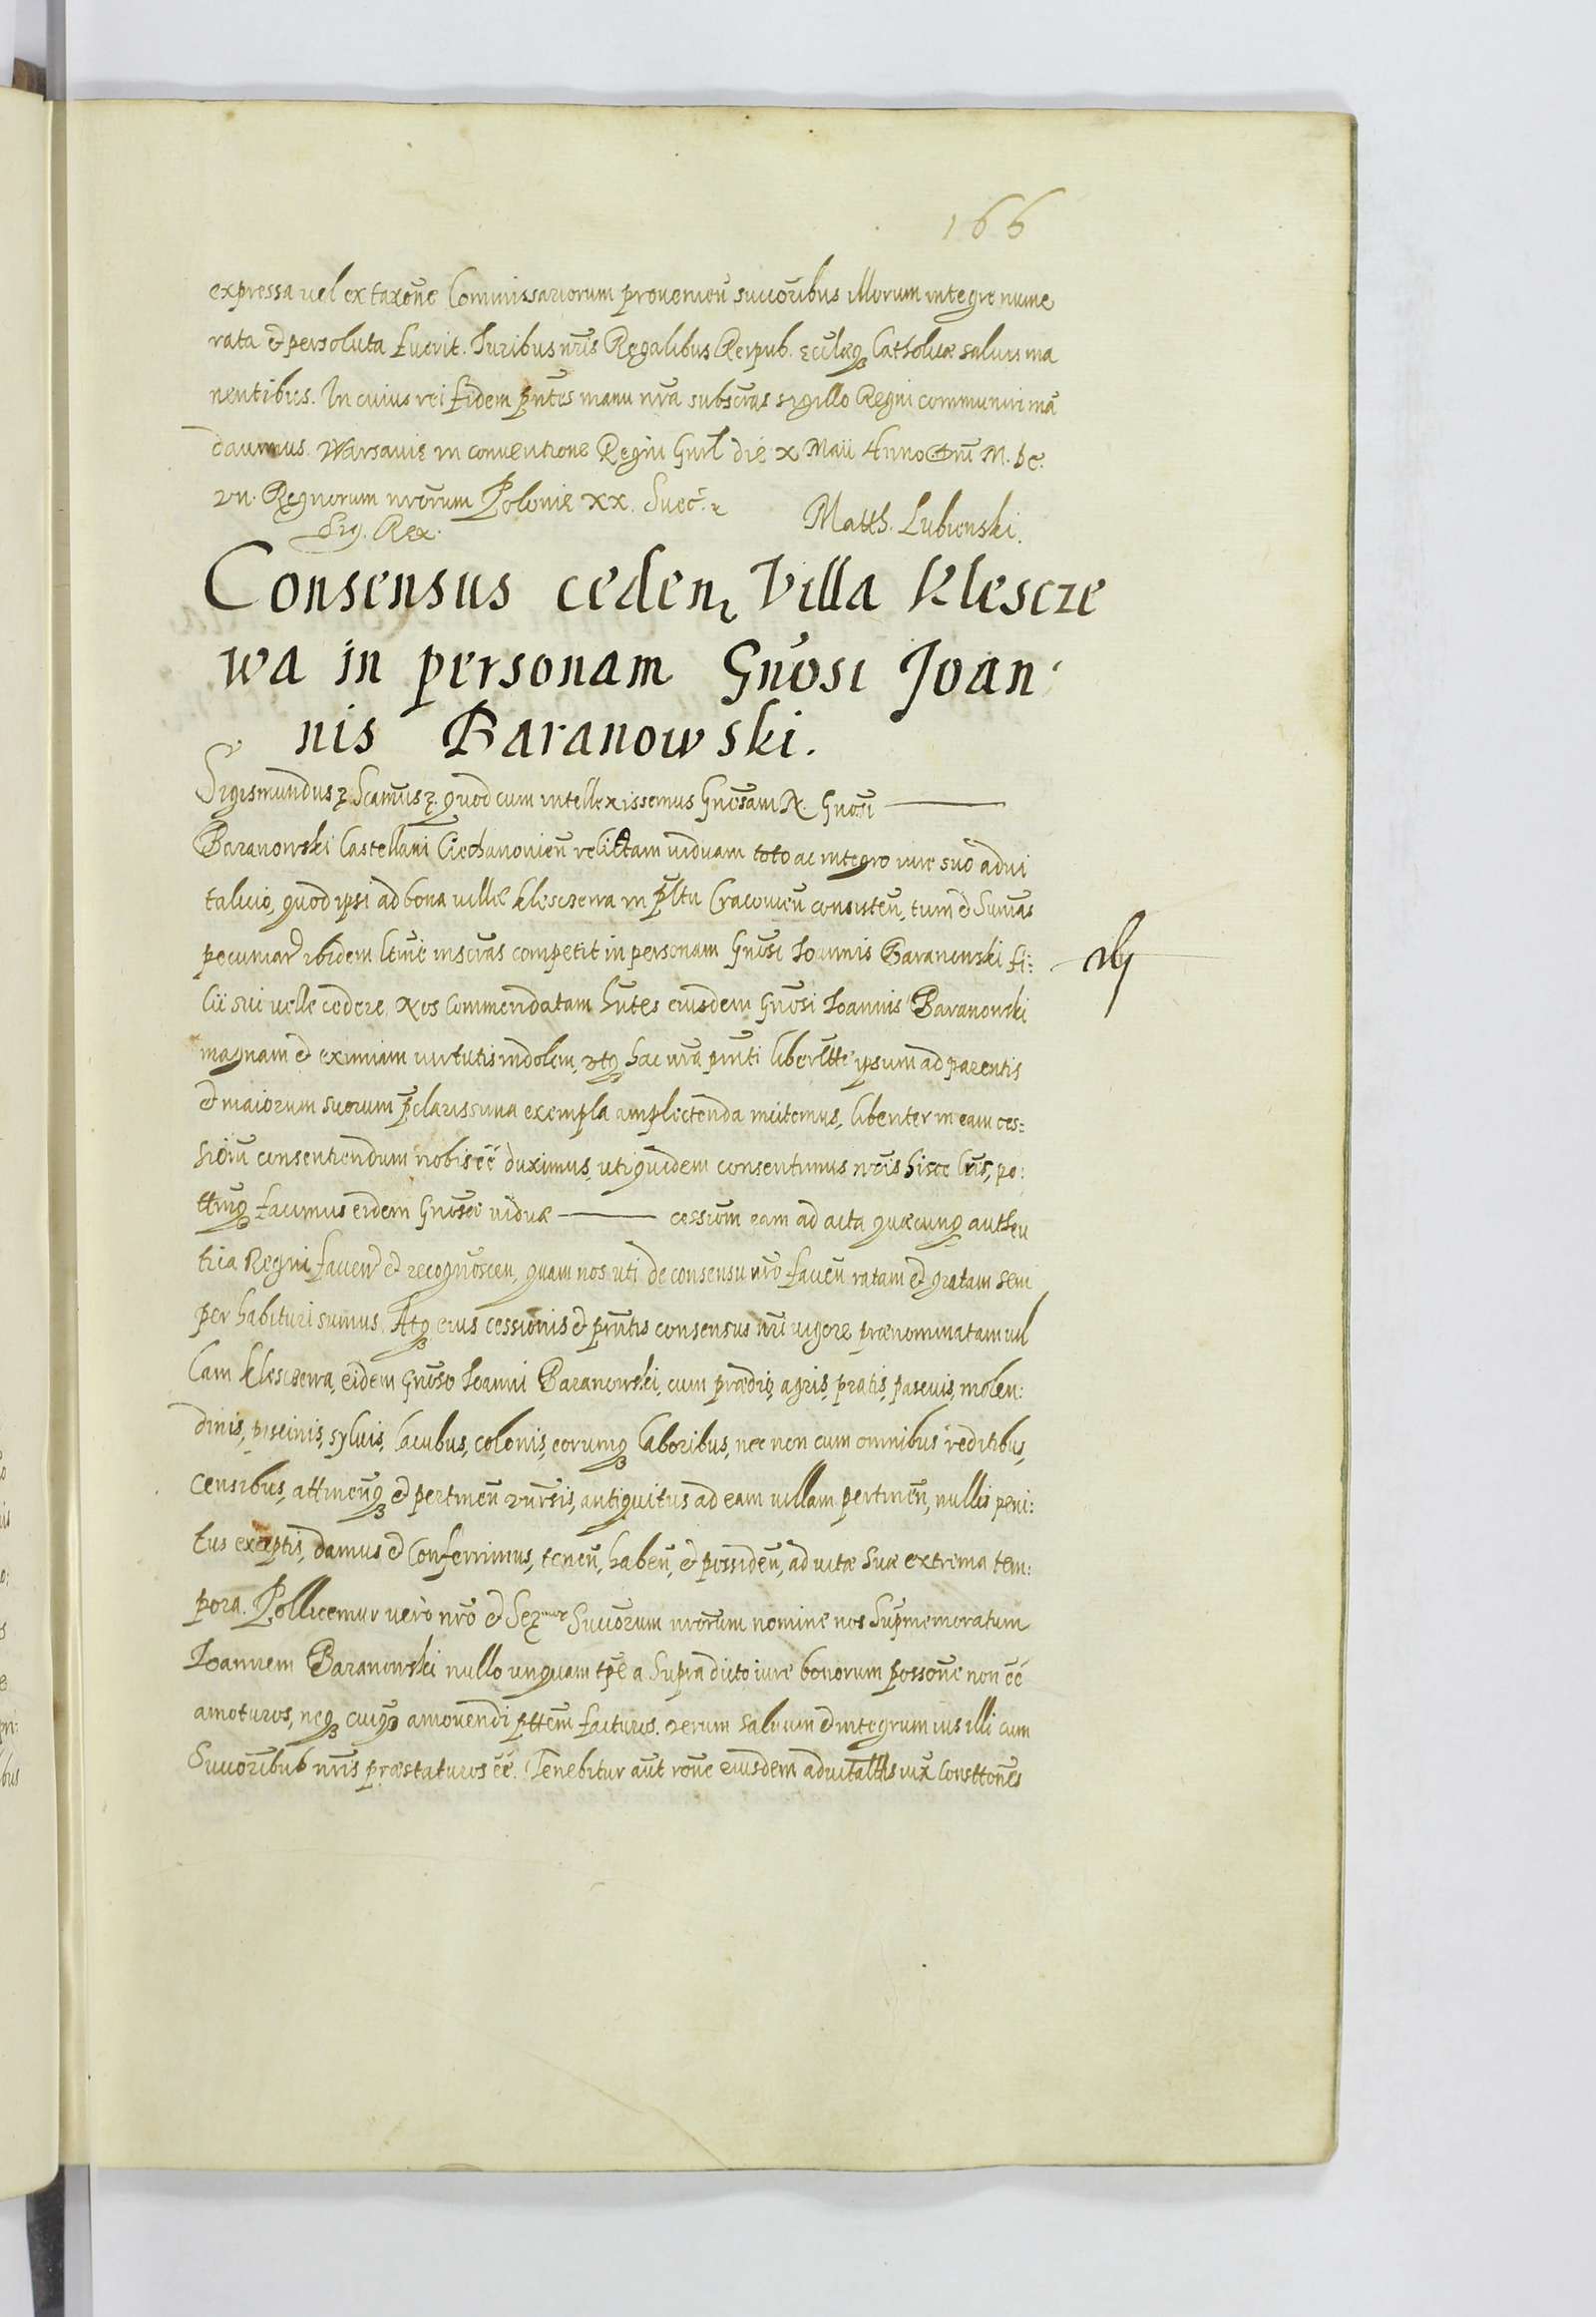 166
expressa vel ex taxõne Commissariorum provenieñ succoribus illorum integre nume
rata et persoluta fuerit. Iuribus nris Regalibus Reipub. Eccliæq Catholicæ salvis ma
nentibus. In cuius rei fidem pñtes manu nra subscras sigillo Regni communiri mã
davimus. Warsaviæ in conventione Regni Gnrl die X Maii Anno Dni M. DC.
VII. Regnorum nrorum Poloniæ XX. Suec.
Sig. Rex. Matth. Lubienski.
Consensus ceden, Villa Klescze
wa in personam Gnosi Joan
nis Baranowski.
Sigismundus Scamus quod cum intellexissemus Gnosam N. Gnosi
Baranowski Castellani Ciechanovieñ relictam viduam toto ac integro iure suo advi
talicio, quod ipsi ad bona villæ Klesczewa in pltu Cracovieñ consisteñ, tum et Sumas
pecuniar ibidem ltme inscras competit in personam Gnosi Ioannis Baranowski fi:
lii sui velle cedere, Nos commendatam hntes eiusdem Gnosi Ioannis Baranowski
magnam et eximiam virtutis indolem, utq hac nra pnti liberltte ipsum ad parentis
et maiorum suorum pclarissima exempla amplectenda incitemus, libenter in eam ces:
sioni consentiendum nobis ee duximus, uti quidem consentimus nris hisce lris, po:
ttmq facimus eidem Gnosæ viduæ cessiom eam ad acta quæcunq authen
tica Regni facien et recognoscen, quam nos uti de consensu nro factam ratam et gratam sem
per habituri sumus. Atq eius cessionis et pntis consensus nri vigore prænominatam vil
lam Klesczewa, eidem Gnoso Ioanni Baranowski, cum prædiis, agris, pratis, pascuis, molen:
dinis, piscinis, sylvis, lacubus, colonis, eorumq laboribus, nec non cum omnibus reditibus,
censibus, attineñq et pertineñ vnrsis, antiquitus ad eam villam pertineñ, nullis peni:
tus exceptis, damus et conferrimus, teneñ, habeñ, et possideñ, ad vitæ suæ extrema tem:
pora. Pollicemur vero nro et Ser. Succorum nrorum nomine nos supmemoratum
Ioannem Baranowski nullo unquam tpe a supradicto iure bonorum possone non ee
amoturos, neq cuiq amovendi pttem facturos. verum salvum et integrum ius illi cum
Succoribus nris præstaturos ee. Tenebitur aut rone eiusdem advitallis iux Consttones